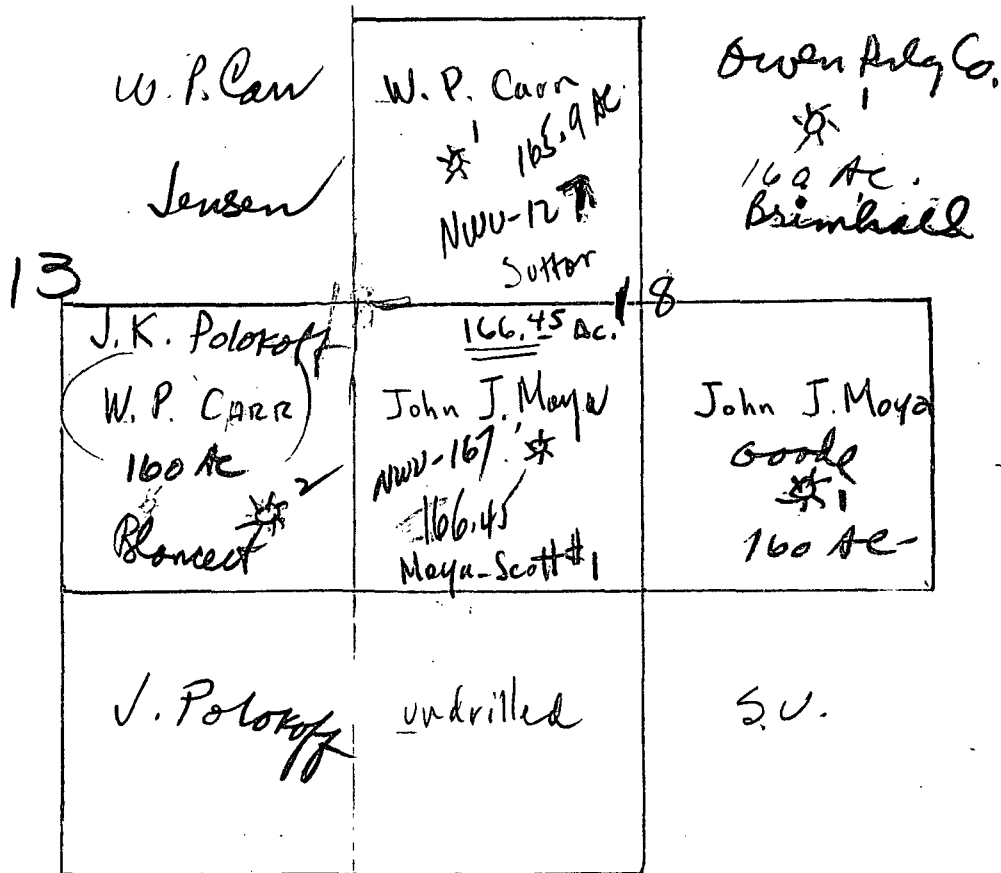 W. P. Carr
Jensen
W. P. Carr
1
165.9 AC
NWU-127
Sutton
Owen Drlg Co.
1
160 Ac.
Brimhall
13
18
J. K. Polokoff
W. P. CARR
160 AC
2
166.45 Ac.
John J. Moya
NWU-167
1
166.45
Moya-Scott #1
John J. Moya
Goode
1
160 Ac-
J. Polokoff
undrilled
S.U.